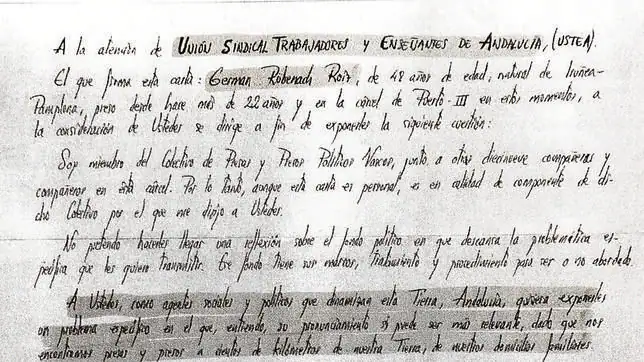 A la atención de UNIÓN SINDICAL TRABAJADORES Y ENSEÑANTES DE ANDALUCÍA, (USTEA).
El que firma esta carta: Germán Rubenach Roiz, de 48 años de edad, natural de Iruñea-
Pamplona, preso desde hace más de 22 años y en la cárcel de Puerto-III en estos momentos, a
la consideración de Ustedes se dirige a fin de exponerles la siguiente cuestión:
Soy miembro del Colectivo de Presas y Presos Políticos Vascos, junto a otros diecinueve compañeras y
compañeros en esta cárcel. Por lo tanto, aunque esta carta es personal, es en calidad de componente de di-
cho Colectivo por el que me dirijo a Ustedes.
No pretendo hacerles llegar una reflexión sobre el fondo político en que descansa la problemática es-
pecífica que les quiero transmitir. Ese fondo tiene sus marcos, tratamiento y procedimiento para ser o no abordado.
A Ustedes, como agentes sociales y políticos que dinamizan esta Tierra, Andalucía, quisiera exponerles
un problema específico en el que, entiendo, su pronunciamiento sí puede ser más relevante, dado que nos
encontramos presas y presos a cientos de kilómetros de nuestra Tierra, de nuestros domicilios familiares.